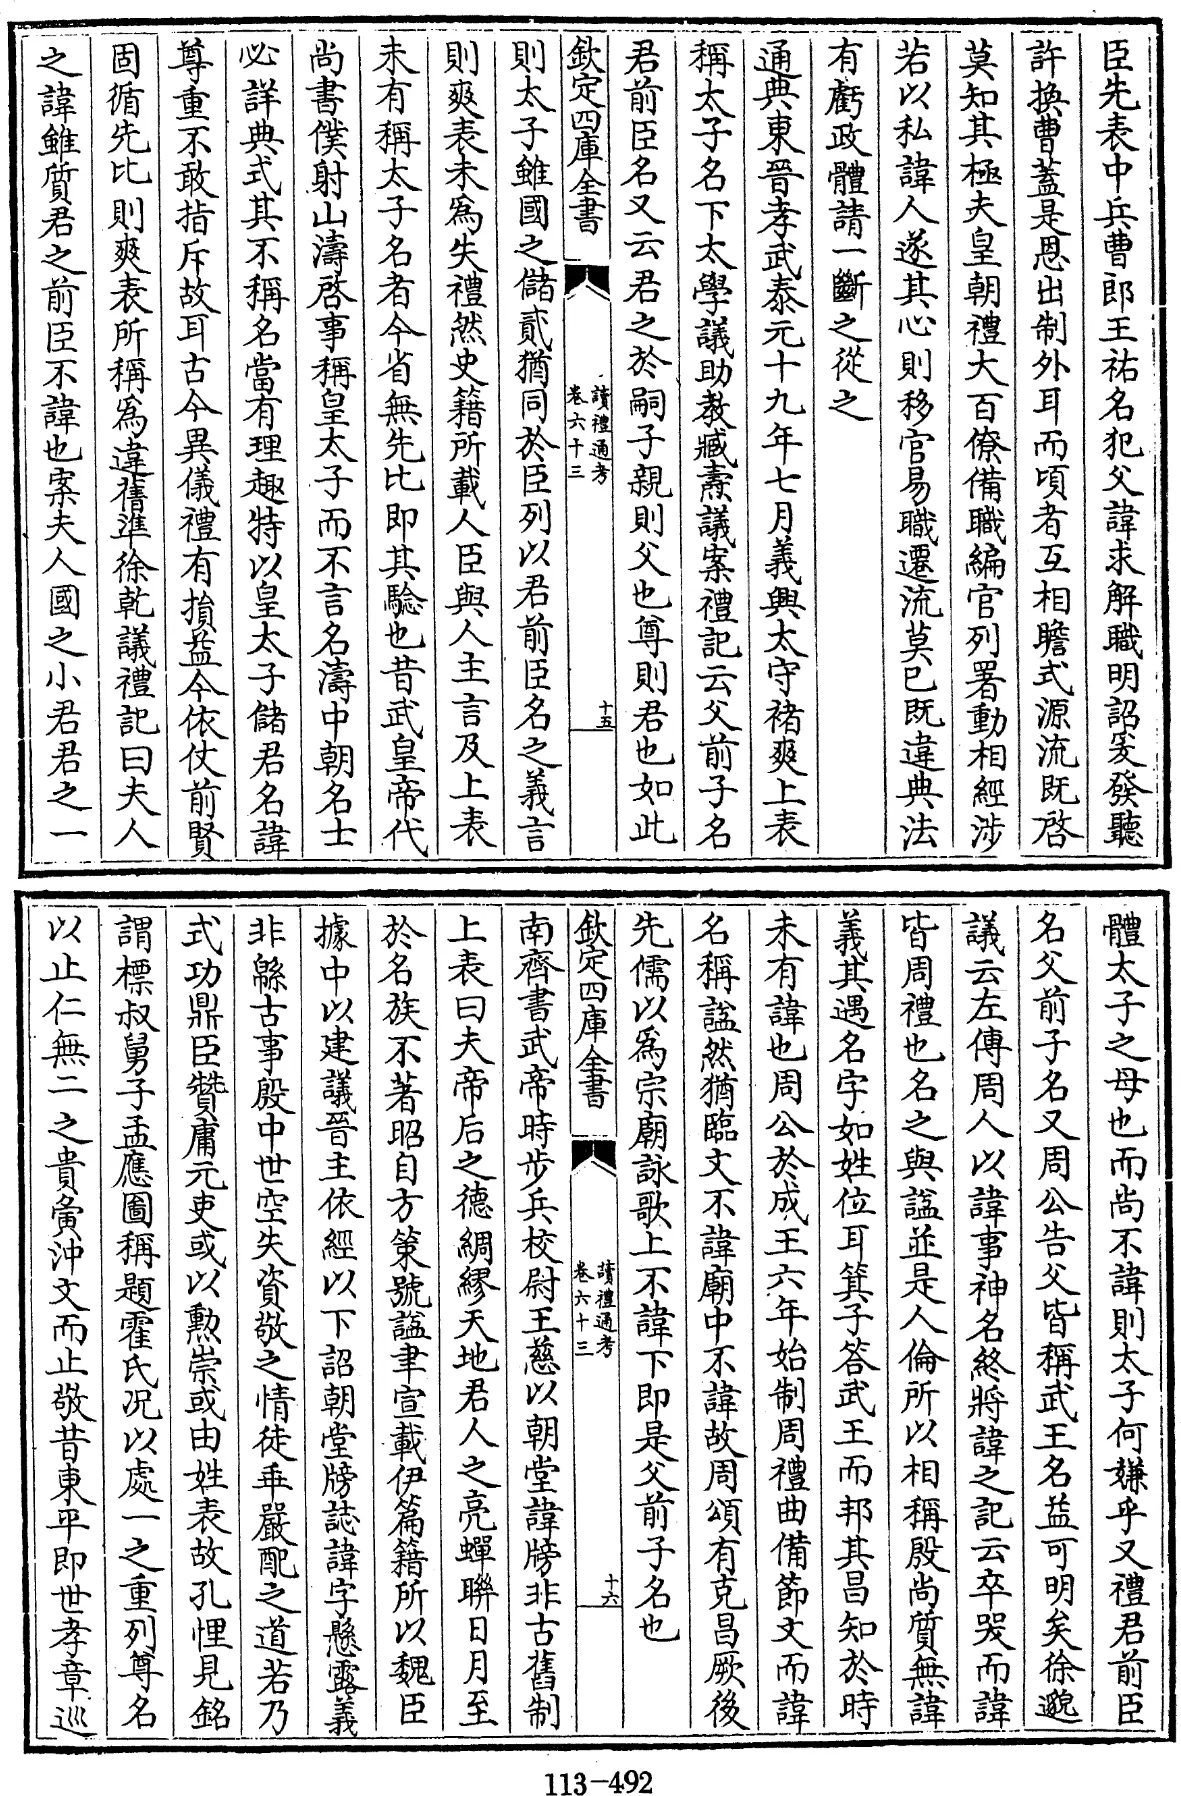 臣先表中兵曹郎王祐名犯父諱求解職明詔爰發聽
許換曹蓋是恩出制外耳而頃者互相瞻式源流既啓
莫知其極夫皇朝禮大百僚備職編官列署動相經涉
若以私諱人遂其心則移官易職遷流莫已既違典法
有虧政體請一斷之從之
通典東晉孝武泰元十九年七月義興太守褚爽上表
稱太子名下太學議助教臧燾議案禮記云父前子名
君前臣名又云君之於嗣子親則父也尊則君也如此
欽定四庫全書
讀禮通考
卷六十三
十五
則太子雖國之儲貳猶同於臣列以君前臣名之義言
則爽表未為失禮然史籍所載人臣與人主言及上表
未有稱太子名者今省無先比即其驗也昔武皇帝代
尚書僕射山濤啓事稱皇太子而不言名濤中朝名士
必詳典式其不稱名當有理趣特以皇太子儲君名諱
尊重不敢指斥故耳古今異儀禮有損益今依仗前賢
固循先比則爽表所稱為違舊準徐乾議禮記曰夫人
之諱雖質君之前臣不諱也案夫人國之小君君之一
體太子之母也而尚不諱則太子何嫌乎又禮君前臣
名父前子名又周公告父皆稱武王名益可明矣徐邈
議云左傳周人以諱事神名終將諱之記云卒哭而諱
皆周禮也名之與諡並是人倫所以相稱殷尚質無諱
義其遇名字如姓位耳箕子答武王而邦其昌知於時
未有諱也周公於成王六年始制周禮曲備節文而諱
名稱諡然猶臨文不諱廟中不諱故周頌有克昌厥後
先儒以為宗廟詠歌上不諱下即是父前子名也
欽定四庫全書
讀禮通考
卷六十三
十六
南齊書武帝時步兵校尉王慈以朝堂諱牓非古舊制
上表曰夫帝后之德綢繆天地君人之亮蟬聯日月至
於名族不著昭自方策號諡聿宣載伊篇籍所以魏臣
據中以建議晉主依經以下詔朝堂牓誌諱字懸露義
非緜古事殷中世空失資敬之情徒乖嚴配之道若乃
式功鼎臣贊庸元吏或以勳崇或由姓表故孔悝見銘
謂標叔舅子孟應圖稱題霍氏況以處一之重列尊名
以止仁無二之貴夤沖文而止敬昔東平即世孝章巡
113-492